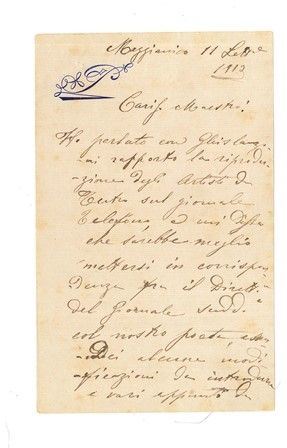 Maggianico 11 Sett.e
1913
Cariss. Maestro!
Ho parlato con Ghislanzo
ni rapporto la riprodu
zione degli Artisti da
Teatro sul giornale
e mi disse
che sarebbe meglio
mettersi in corrispon
denza fra il Dirett.e
del Giornale sudd.o
col nostro poeta,
alcune modi
ficazioni da introdurre
e vari appunti da